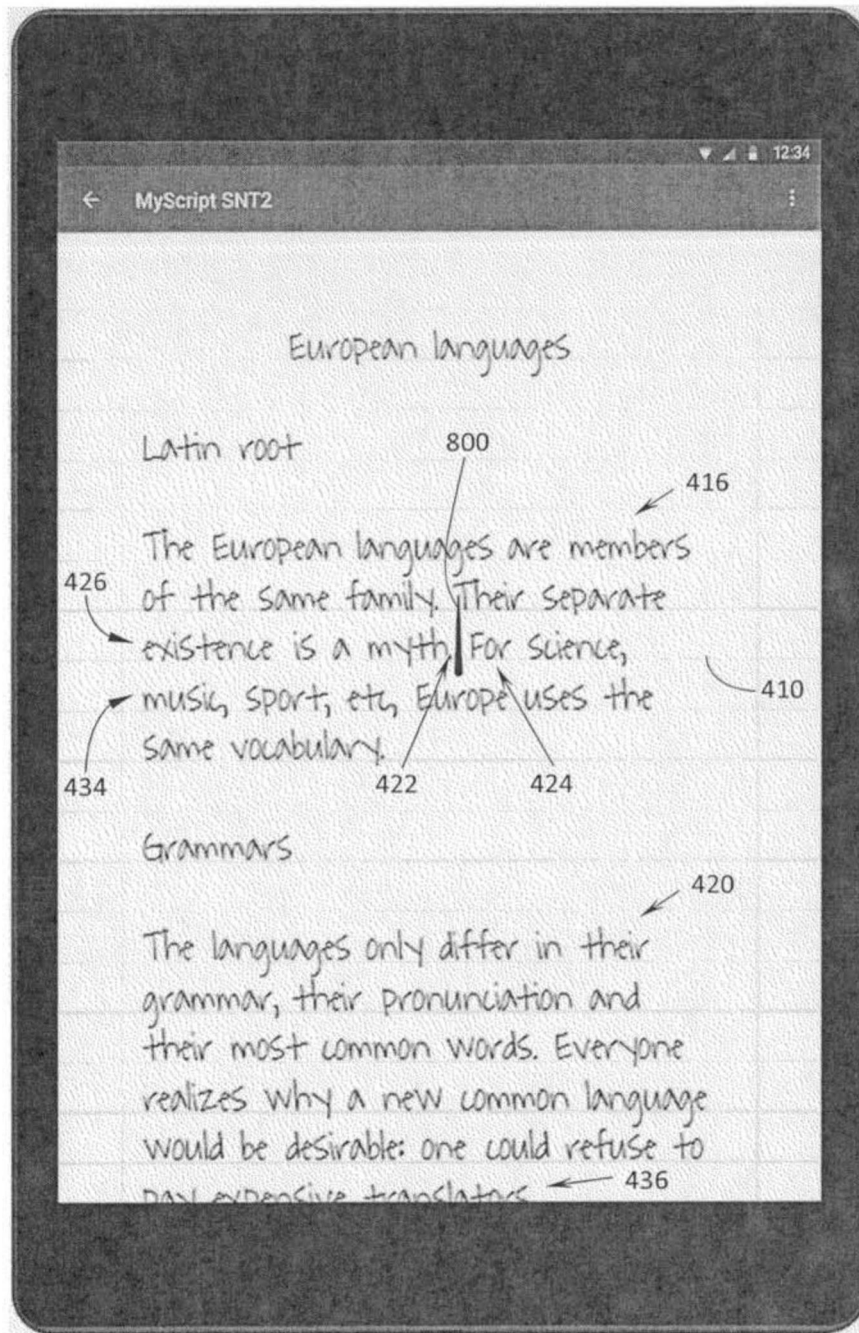 12:34
MyScript SNT2
European languages
Latin root
800
416
The European languages are members
426
of the same family. Their separate
existence is a myth. For science,
410
music, sport, etc, Europe uses the
434
same vocabulary.
422
424
Grammars
420
The languages only differ in their
grammar, their pronunciation and
their most common words. Everyone
realizes why a new common language
would be desirable: one could refuse to
436
pay expensive translators